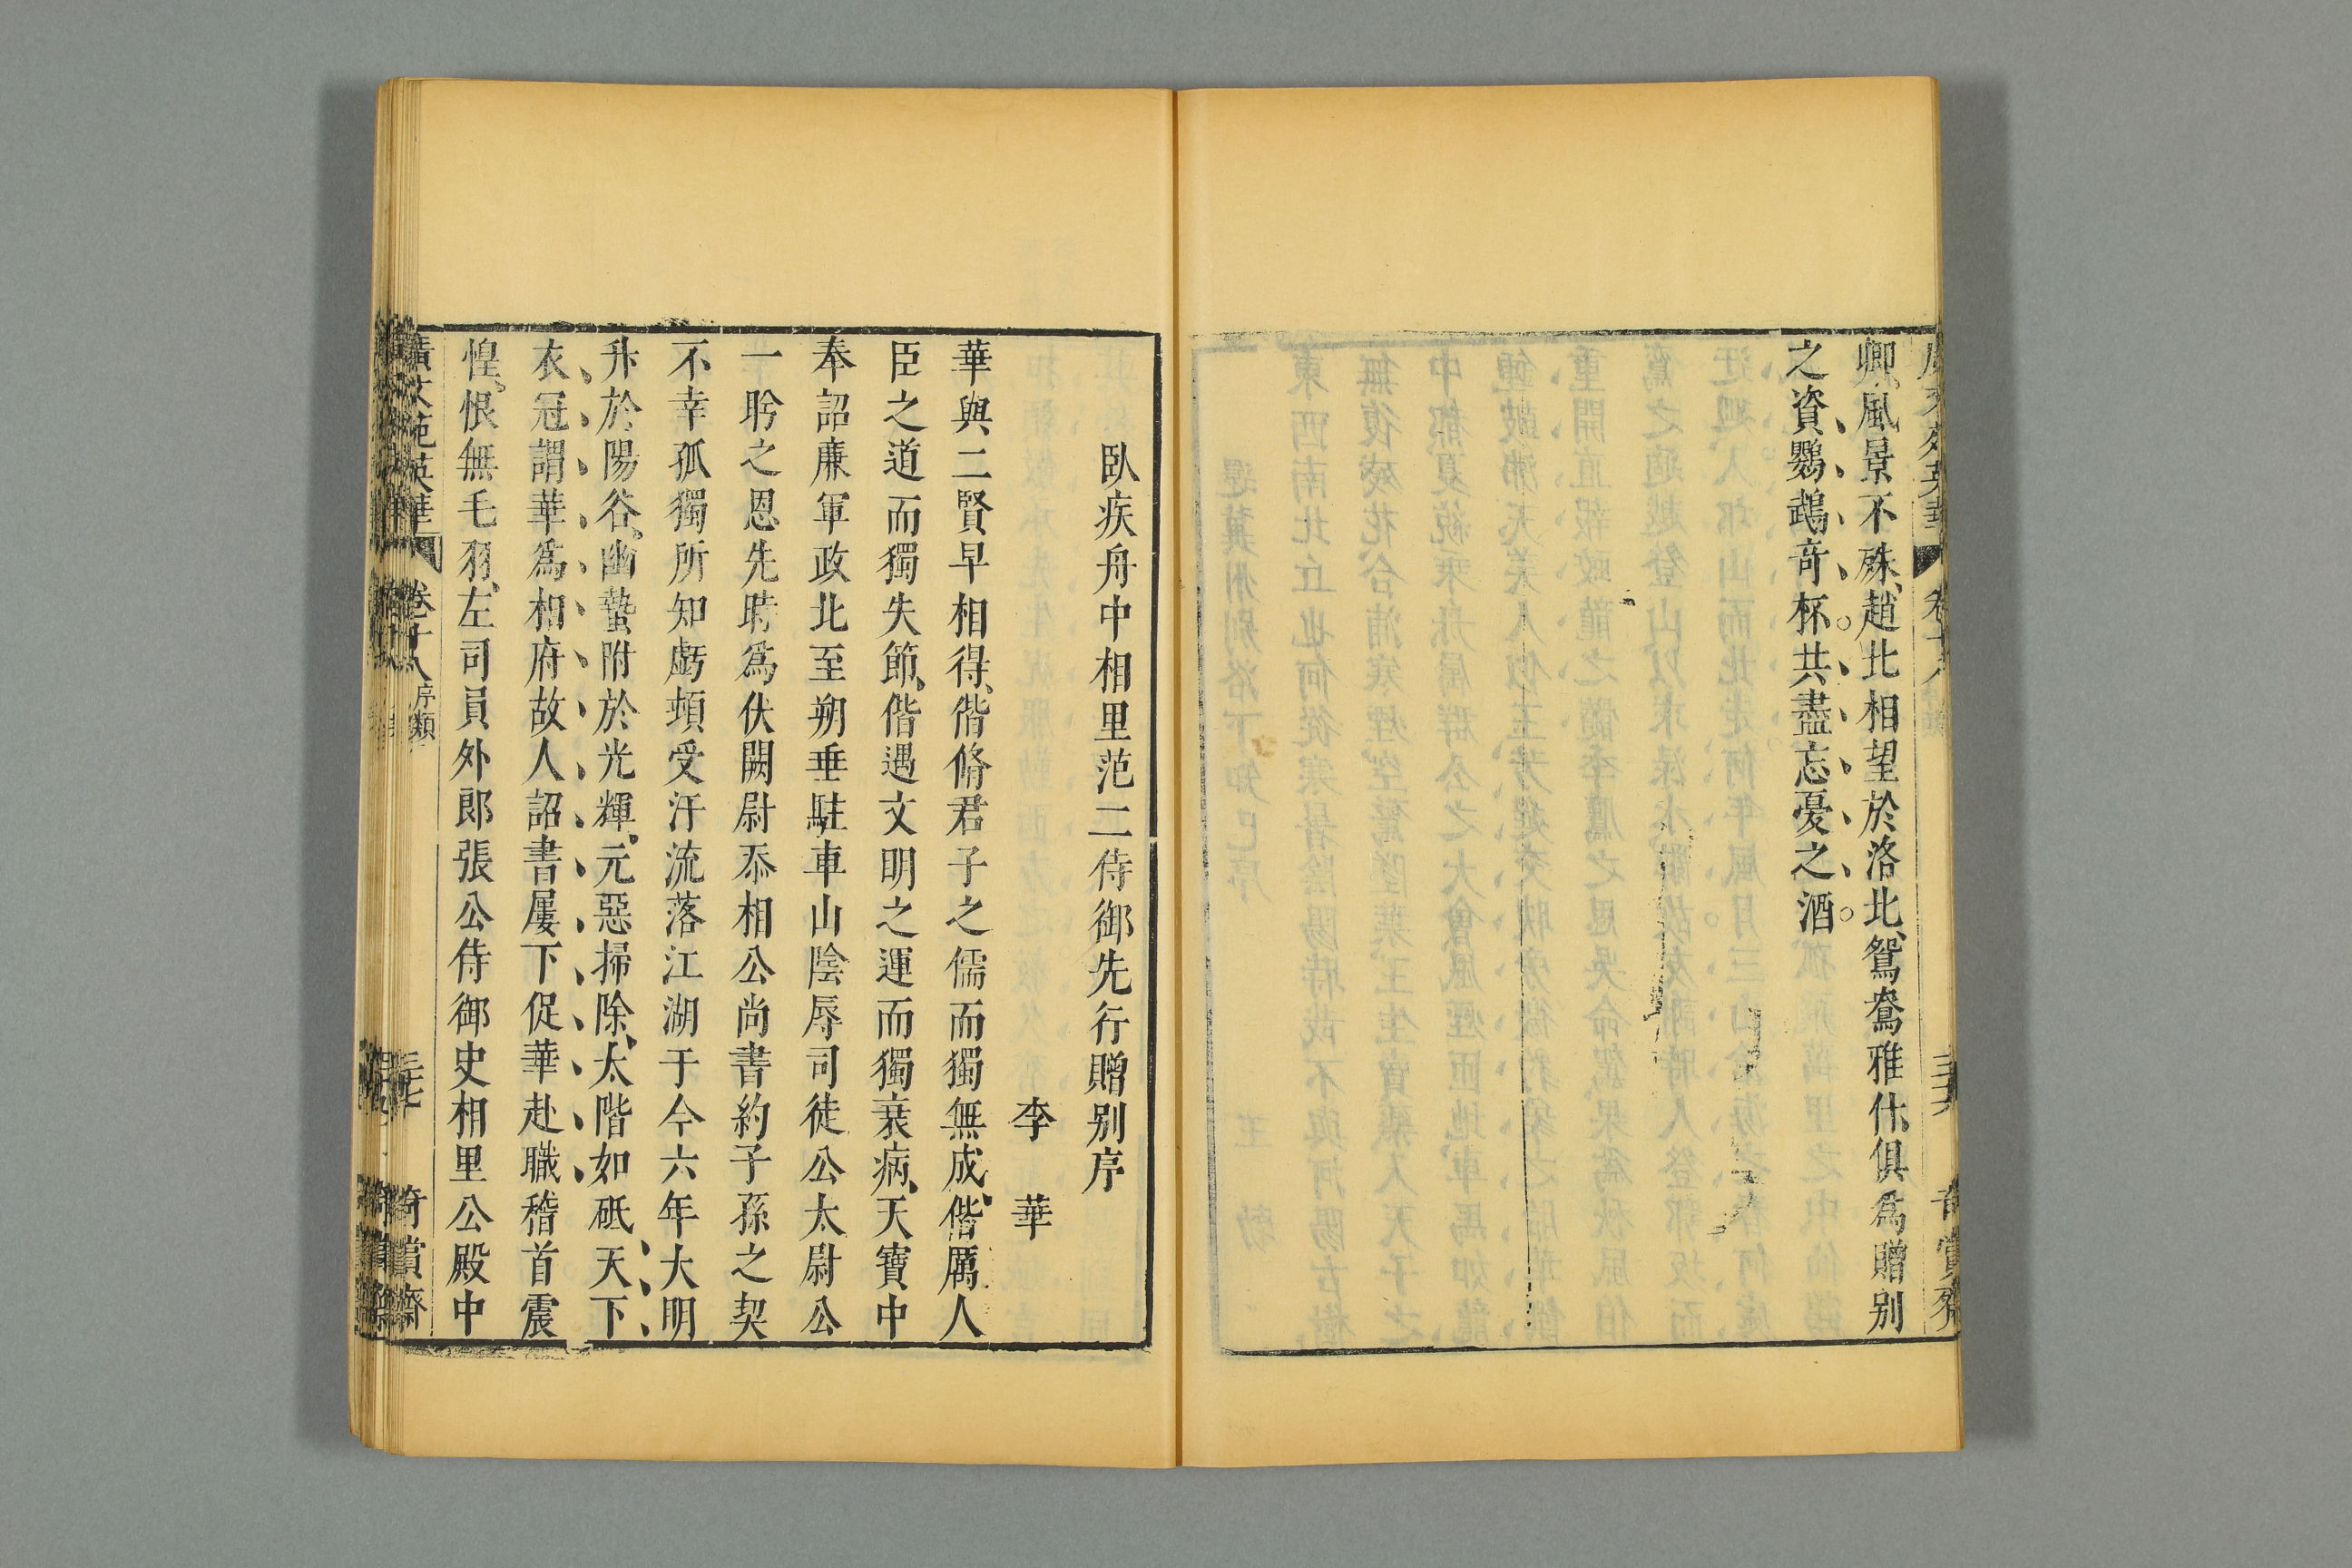 卿、風景不殊、趙北相望於洛北、鴛鴦雅什、俱爲贈别
之資、鸚鵡奇杯、共盡忘憂之酒
臥疾舟中相里范二侍御先行贈别序
李　華
華與二賢早相得、偕脩君子之儒而獨無成、偕厲人
臣之道而獨失節、偕遇文明之運而獨衰病、天寶中
奉詔廉軍政北至朔垂駐車山陰辱司徒公太尉公
一盻之恩先時爲伏闕尉忝相公尚書約子孫之契
不幸孤獨所知虧頓受汙流落江湖于今六年大明
升於陽谷、幽蟄附於光輝、元惡掃除、太階如砥天下
衣冠謂華爲相府故人詔書屢下促華赴職稽首震
惶。恨無毛羽、左司員外郎張公侍御史相里公殿中
廣文苑英華　卷十八 序類　三十七　奇賞齋